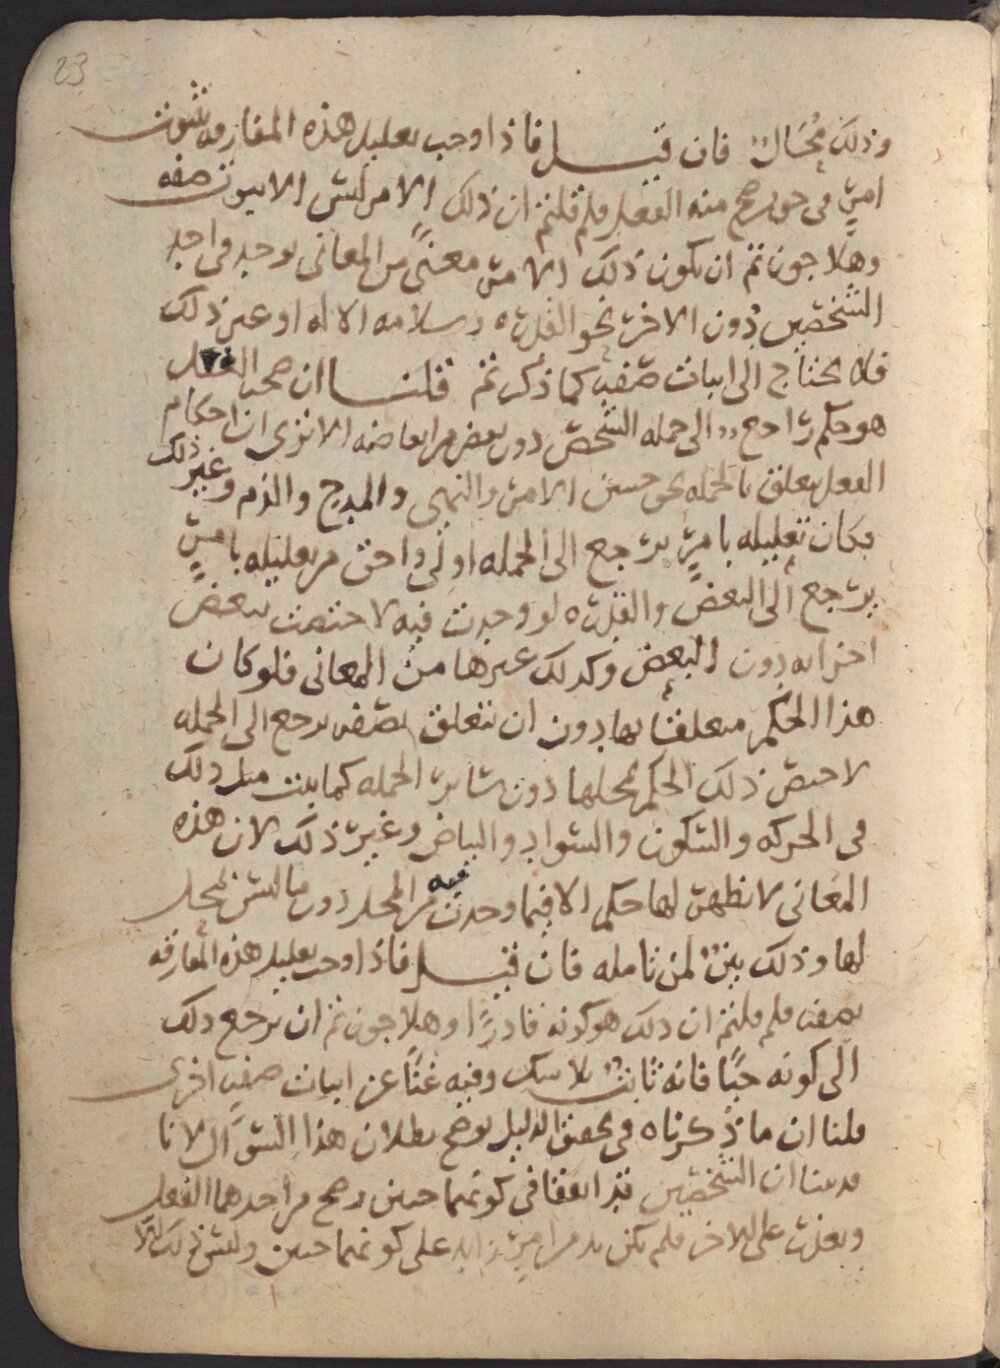 23
وذلك محال فان قيل فاذا وجب تعليل هذه المفارقه بثبوت
امر في من صح منه الفعل فلم قلتم ان ذلك الامر ليس الا ثبوت صفه
وهلا جوزتم ان يكون ذلك الامر معنى من المعاني يوجد في احد
الشخصين دون الاخر نحو القدره وسلامه الاله او غير ذلك
فلا يحتاج الى اثبات صفه كما ذكرتم قلنا ان صحه الفعل
هو حكم راجع الى جمله الشخص دون بعض من ابعاضه الا ترى ان احكام
الفعل يتعلق بالجمله نحو حسن الامر والنهي والمدح والذم وغير ذلك
فكان تعليله بامر يرجع الى الجمله اولى واحق من تعليله بامر
يرجع الى البعض والقدره لو وجدت فيه لاختصت ببعض
اجزائه دون البعض وكذلك غيرها من المعاني فلو كان
هذا الحكم متعلقا بها دون ان تتعلق بصفه يرجع الى الجمله
لاختص ذلك الحكم بمحلها دون سائر الجمله كما يثبت مثل ذلك
في الحركه والسكون والسواد والبياض وغير ذلك لان هذه
المعاني لا تظهر لها حكم الا فيما وجدت فيه من المحل دون ما ليس بمحل
لها وذلك بين لمن تامله فان قيل فاذا وجب تعليل هذه المفارقه
بصفه فلم قلتم ان ذلك هو كونه قادرا وهلا جوزتم ان يرجع ذلك
الى كونه حيا فانه ثابت بلا شك وفيه غنا عن اثبات صفه اخرى
قلنا ان ما ذكرناه في تحقيق الدليل يوضح بطلان هذا السوال لانا
قد بينا ان الشخصين قد اتفقا في كونهما حيين وصح من احدهما الفعل
وتعذر على الاخر فلم يكن بد من امر زايد على كونهما حيين وليس ذلك الا